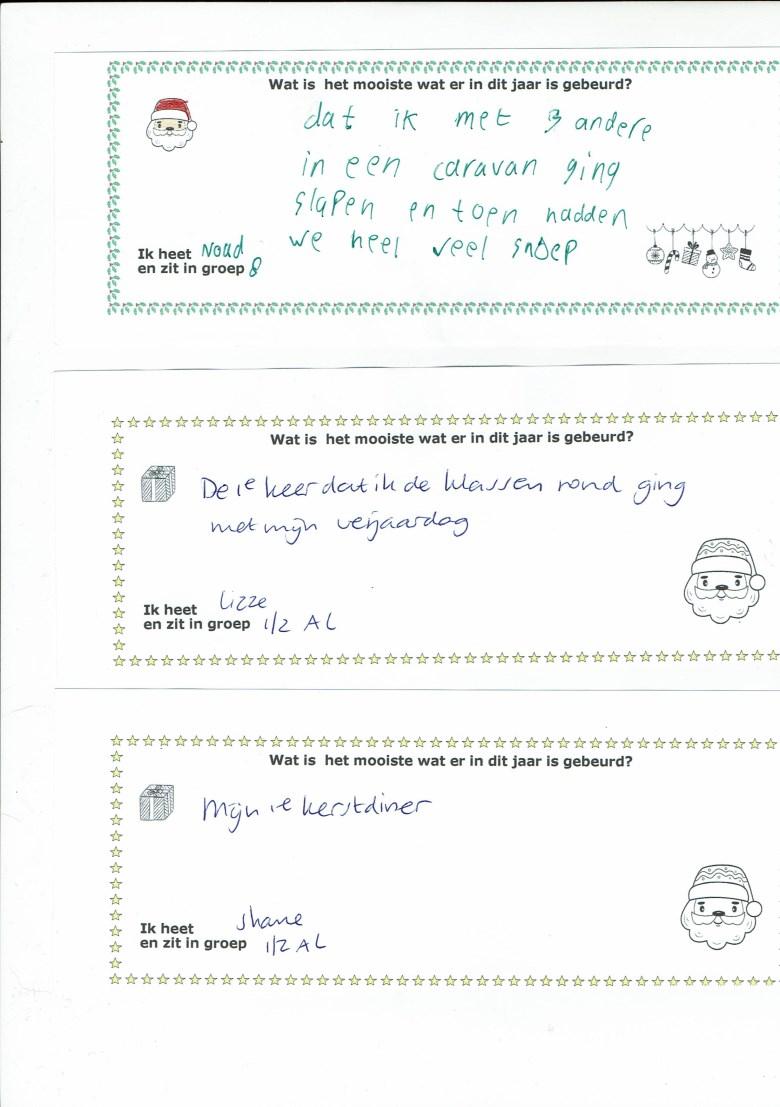 Wat is het mooiste wat er in dit jaar is gebeurd?
dat ik met 3 andere
in een caravan ging
slapen en toen hadden
we heel veel snoep
Ik heet Noud
en zit in groep 8
Wat is het mooiste wat er in dit jaar is gebeurd?
De 1e keer dat ik de klassen rond ging
met mijn verjaardag
Ik heet Lizze
en zit in groep 1/2 AL
Wat is het mooiste wat er in dit jaar is gebeurd?
Mijn 1e kerstdiner
Ik heet Shane
en zit in groep 1/2 AL